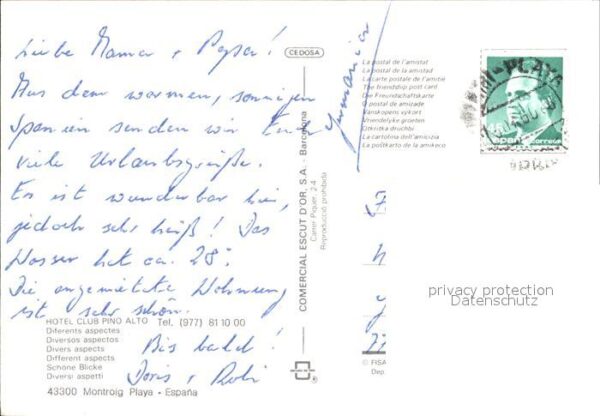 Liebe Mama + Papa!
Aus dem warmen, sonnigen
Spanien senden wir Euch
viele Urlaubsgrüße.
Es ist wunderbar hier,
jedoch sehr heiß! Das
Wasser hat ca. 28°.
Die angemietete Wohnung
ist sehr schön.
Bis bald!
Doris +
HOTEL CLUB PINO ALTO Tel. (977) 81 10 00
Diferents aspectes
Diversos aspectos
Divers aspects
Different aspects
Schöne Blicke
Diversi aspetti
43300 Montroig Playa - España
CEDOSA
COMERCIAL ESCUT D'OR, S.A. - Barcelona
Carrer Piquer, 2-4
Reproducció prohibida
La postal de l'amistat
La postal de la amistad
La carte postale de l'amitié
The friendship post card
Die Freundschaftskarte
O postal de amizade
Vänskapens vykort
Vriendelijke groeten
Otkritka druchbi
La cartolina dell'amicizia
La poštkarto de la amikeco
PLAYA
España correos
privacy protection
Datenschutz
© FISA
Dep.